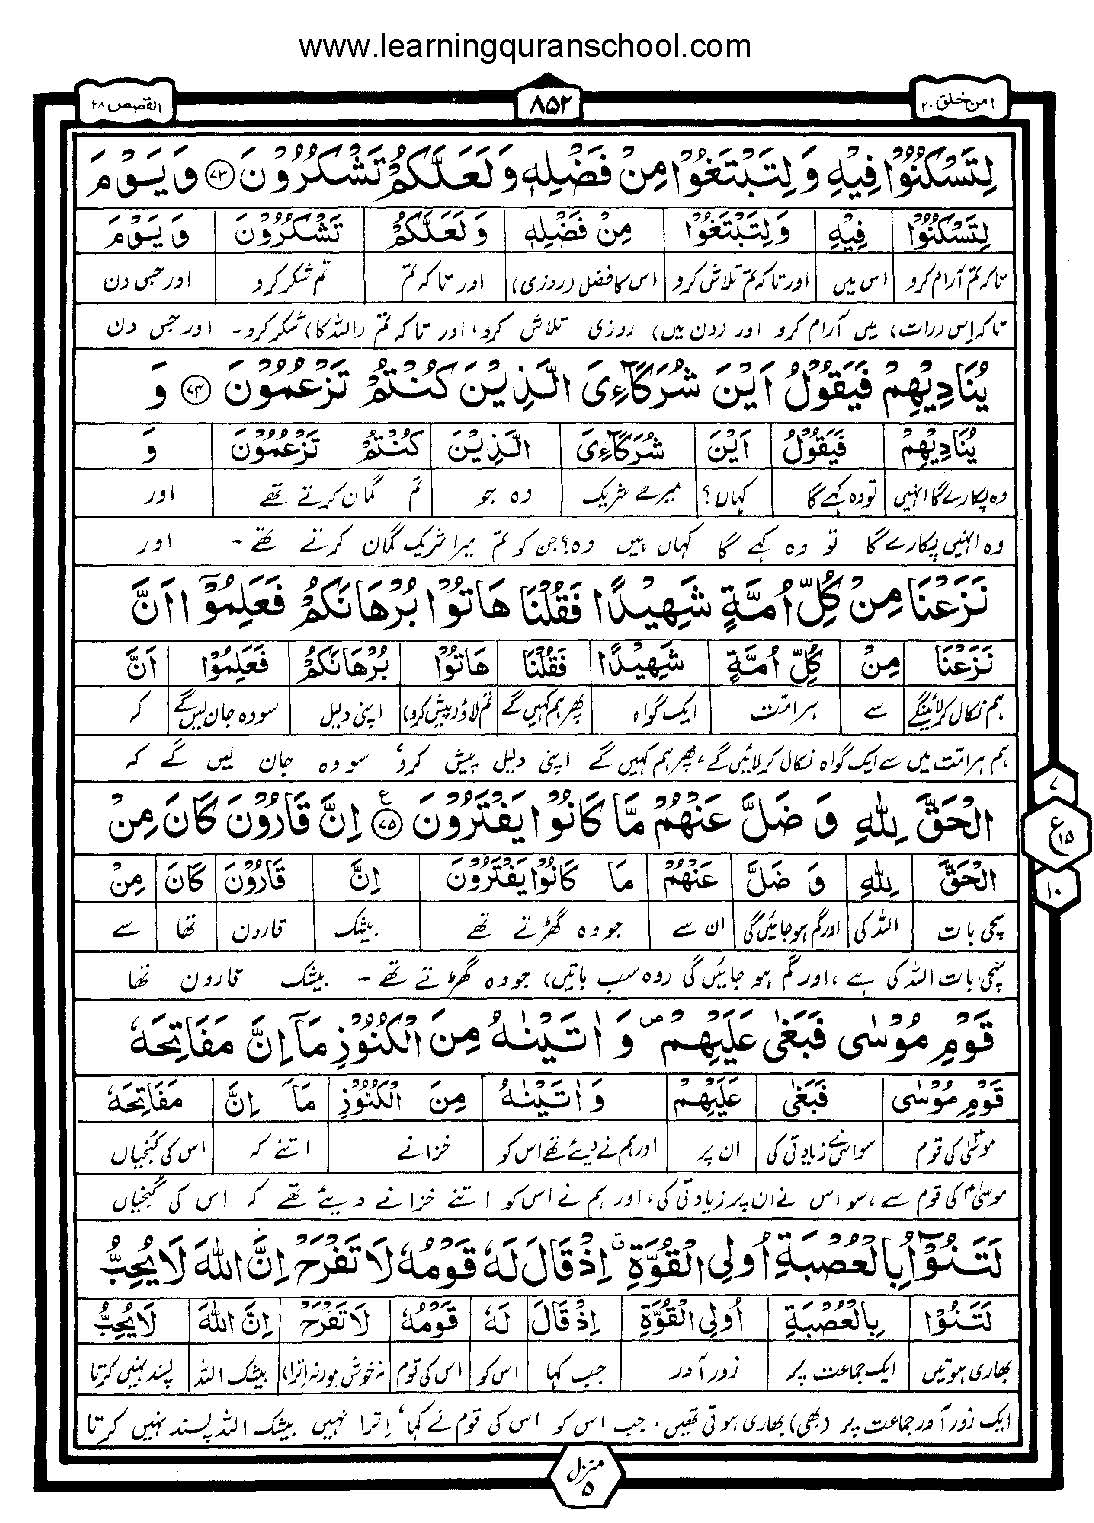 www.learningquranschool.com
امن خلق ۲۰
۸۵۲
القصص ۲۸
لِتَسْكُنُوْا فِيْهِ وَلِتَبْتَغُوْا مِنْ فَضْلِهٖ وَلَعَلَّكُمْ تَشْكُرُوْنَ ﴿۷۳﴾ وَيَوْمَ
لِتَسْكُنُوْا فِيْهِ وَلِتَبْتَغُوْا مِنْ فَضْلِهٖ وَلَعَلَّكُمْ تَشْكُرُوْنَ وَيَوْمَ
تاکہ تم آرام کرو اس میں اور تاکہ تم تلاش کرو اس کا فضل (روزی) اور تاکہ تم تم شکر کرو اور جس دن
تاکہ اس (رات) میں آرام کرو اور (دن میں) روزی تلاش کرو، اور تاکہ تم (اللہ کا) شکر کرو۔ اور جس دن
يُنَادِيْهِمْ فَيَقُوْلُ اَيْنَ شُرَكَآءِیَ الَّذِيْنَ كُنْتُمْ تَزْعُمُوْنَ ﴿۷۴﴾ وَ
يُنَادِيْهِمْ فَيَقُوْلُ اَيْنَ شُرَكَآءِیَ الَّذِيْنَ كُنْتُمْ تَزْعُمُوْنَ وَ
وہ پکارے گا انہیں تو وہ کہے گا کہاں؟ میرے شریک وہ جو تم گمان کرتے تھے اور
وہ انہیں پکارے گا تو وہ کہے گا کہاں ہیں وہ؟ جن کو تم میرا شریک گمان کرتے تھے۔ اور
نَزَعْنَا مِنْ كُلِّ اُمَّةٍ شَهِيْدًا فَقُلْنَا هَاتُوْا بُرْهَانَكُمْ فَعَلِمُوْٓا اَنَّ
نَزَعْنَا مِنْ كُلِّ اُمَّةٍ شَهِيْدًا فَقُلْنَا هَاتُوْا بُرْهَانَكُمْ فَعَلِمُوْٓا اَنَّ
ہم نکال کر لائینگے سے ہر امت ایک گواہ پھر ہم کہیں گے تم لاؤ (پیش کرو) اپنی دلیل سو وہ جان لیں گے کہ
ہم ہر امت میں سے ایک گواہ نکال کر لائیں گے، پھر ہم کہیں گے اپنی دلیل پیش کرو، سو وہ جان لیں گے کہ
الْحَقَّ لِلّٰهِ وَضَلَّ عَنْهُمْ مَّا كَانُوْا يَفْتَرُوْنَ ﴿۷۵﴾ ع اِنَّ قَارُوْنَ كَانَ مِنْ
۷
ع ۱۵
۱۰
الْحَقَّ لِلّٰهِ وَضَلَّ عَنْهُمْ مَا كَانُوْا يَفْتَرُوْنَ اِنَّ قَارُوْنَ كَانَ مِنْ
سچی بات اللہ کی اور گم ہو جائیں گی ان سے جو وہ گھڑتے تھے بیشک قارون تھا سے
سچی بات اللہ کی ہے، اور گم ہو جائیں گی (وہ سب باتیں) جو وہ گھڑتے تھے۔ بیشک قارون تھا
قَوْمِ مُوْسٰى فَبَغٰى عَلَيْهِمْ ص وَاٰتَيْنٰهُ مِنَ الْكُنُوْزِ مَآ اِنَّ مَفَاتِحَهٗ
قَوْمِ مُوْسٰى فَبَغٰى عَلَيْهِمْ وَاٰتَيْنٰهُ مِنَ الْكُنُوْزِ مَآ اِنَّ مَفَاتِحَهٗ
موسیٰ کی قوم سو اس نے زیادتی کی ان پر اور ہم نے دیئے تھے اس کو خزانے اتنے کہ اس کی کنجیاں
موسیٰؑ کی قوم سے، سو اس نے ان پر زیادتی کی، اور ہم نے اس کو اتنے خزانے دیئے تھے کہ اس کی کنجیاں
لَتَنُوْٓاُ بِالْعُصْبَةِ اُولِی الْقُوَّةِ ق اِذْ قَالَ لَهٗ قَوْمُهٗ لَا تَفْرَحْ اِنَّ اللّٰهَ لَا يُحِبُّ
لَتَنُوْٓاُ بِالْعُصْبَةِ اُولِی الْقُوَّةِ اِذْ قَالَ لَهٗ قَوْمُهٗ لَا تَفْرَحْ اِنَّ اللّٰهَ لَا يُحِبُّ
بھاری ہوتیں ایک جماعت پر زور آور جب کہا اس کو اس کی قوم نہ خوش ہو (نہ اترا) بیشک اللہ پسند نہیں کرتا
ایک زور آور جماعت پر (بھی) بھاری ہوتی تھیں، جب اس کو اس کی قوم نے کہا، اترا نہیں بیشک اللہ پسند نہیں کرتا
منزل ۵